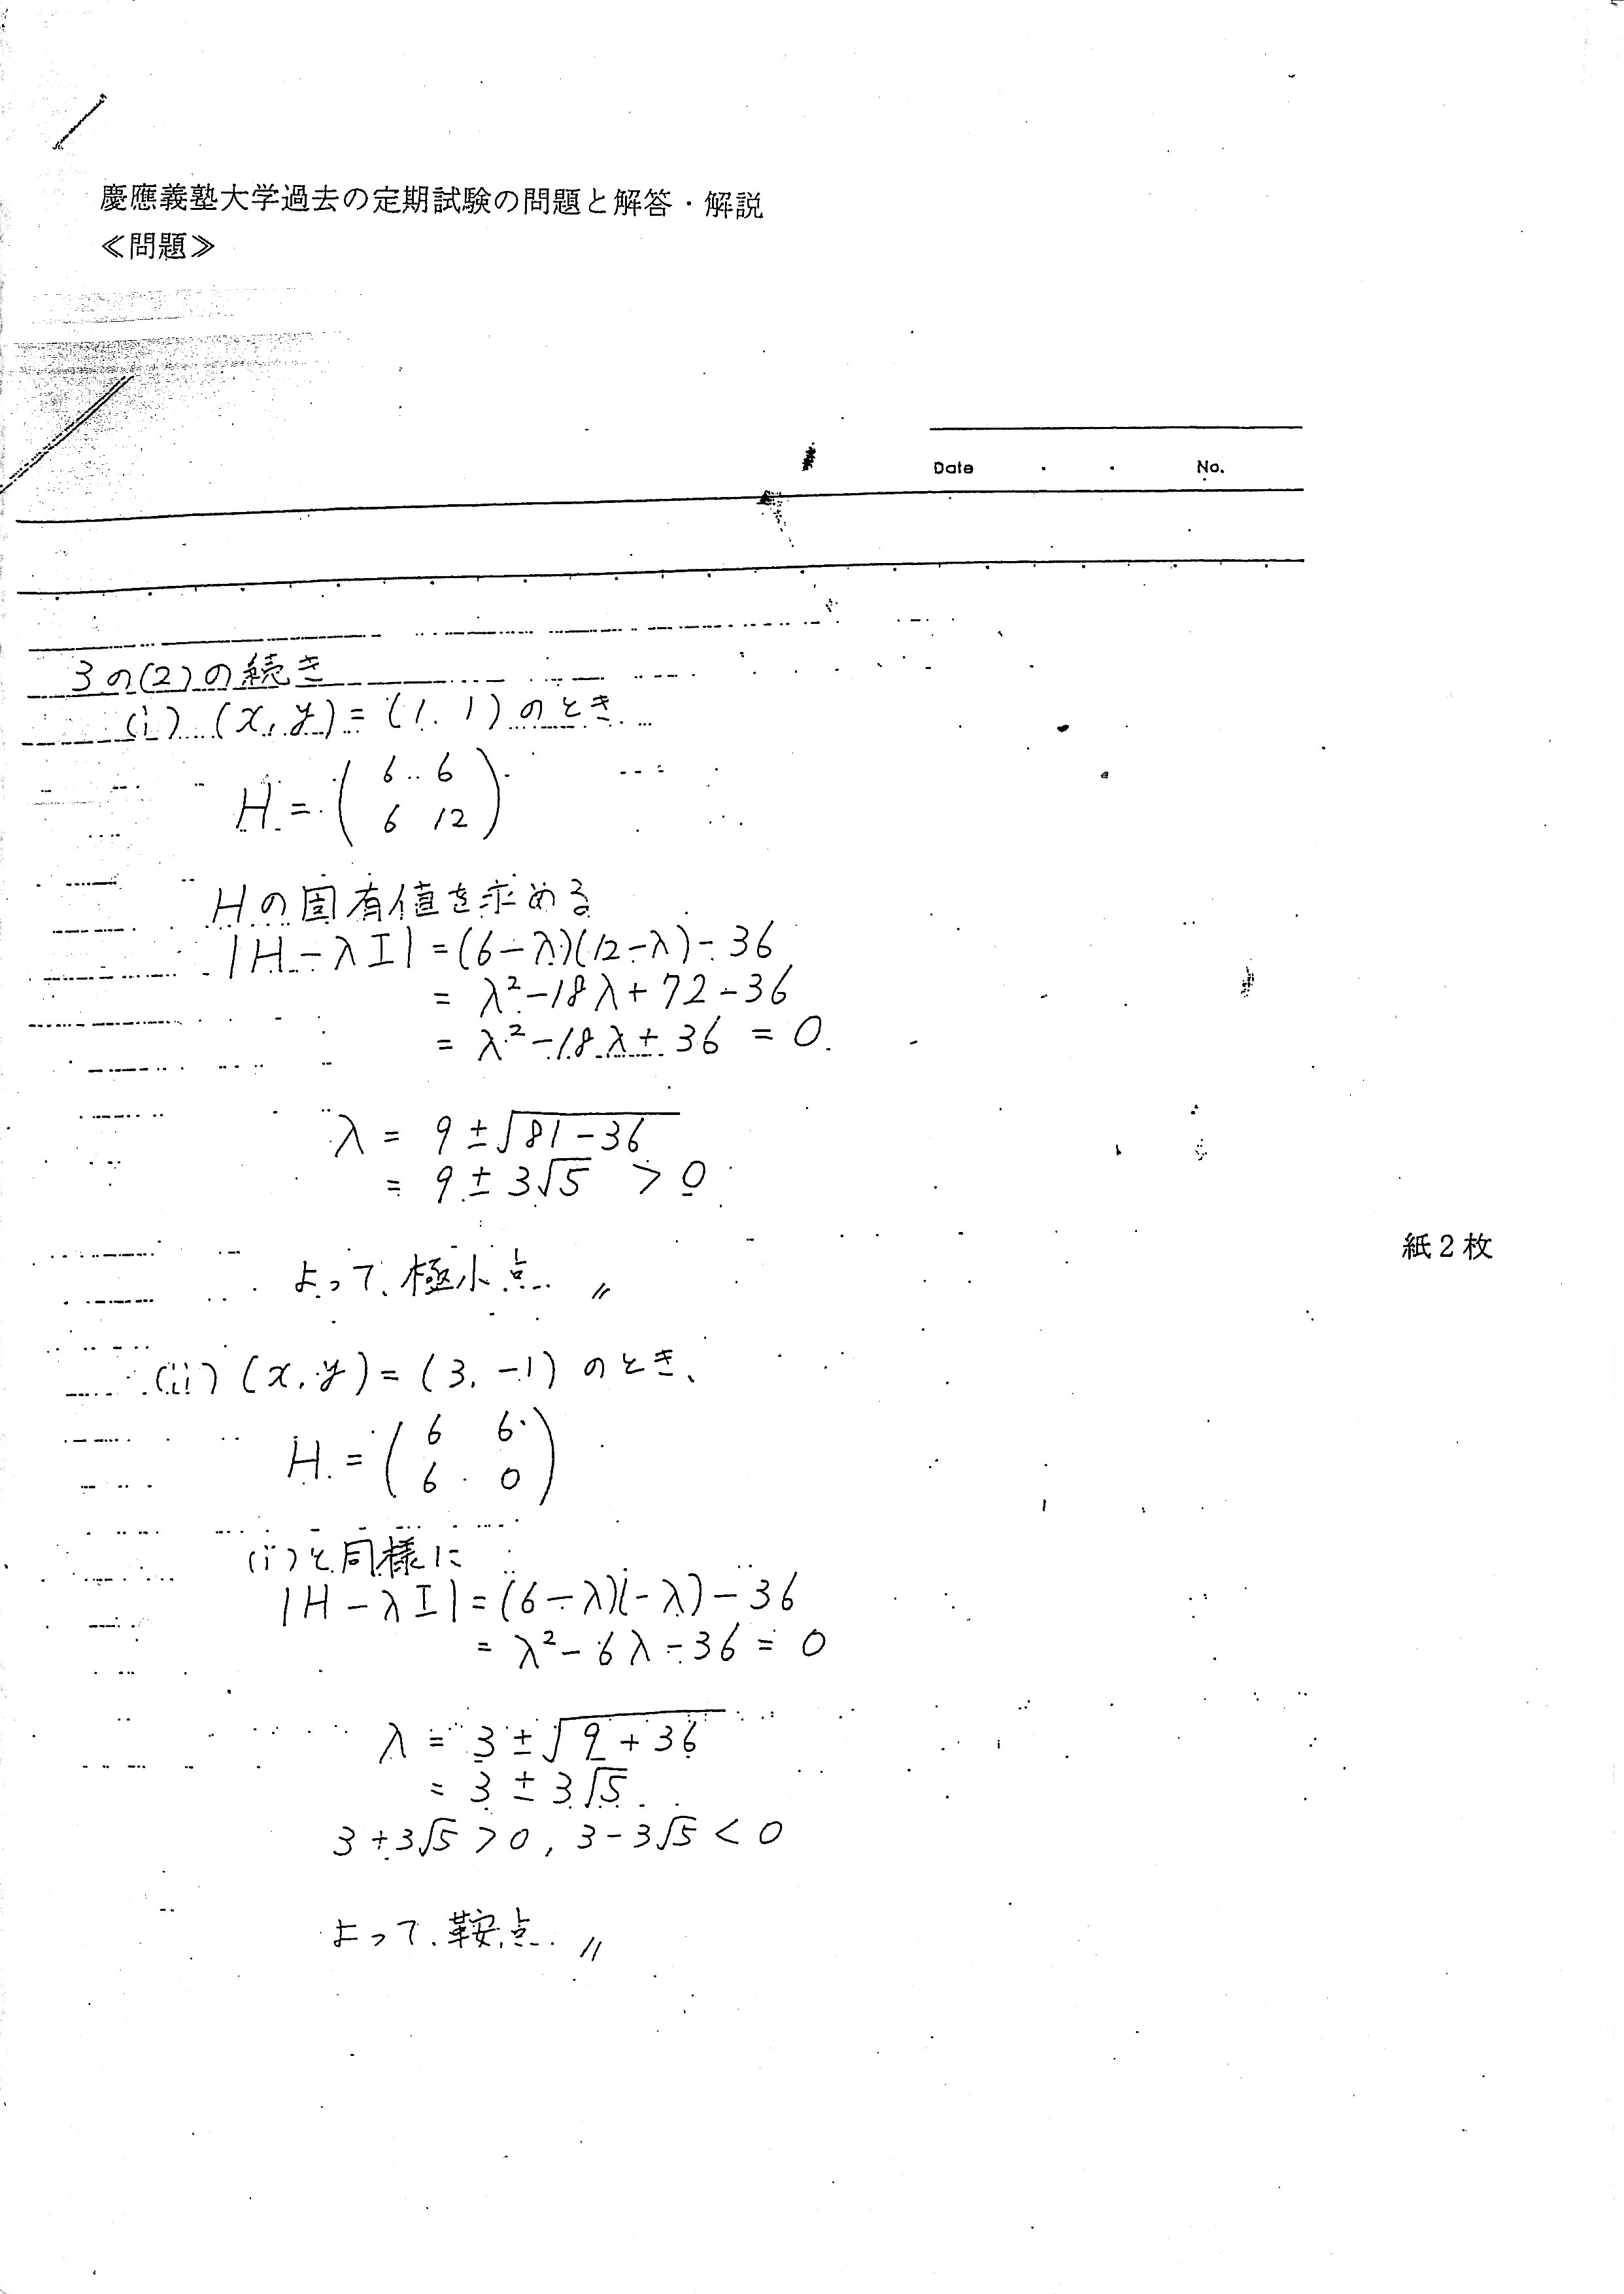 慶應義塾大学過去の定期試験の問題と解答・解説
≪問題≫
Date ・ ・ No.
3の(2)の続き
(i) (x, y) = (1, 1) のとき
H = ( 6 6
6 12 )
Hの固有値を求める
|H - λI| = (6-λ)(12-λ) - 36
= λ² - 18λ + 72 - 36
= λ² - 18λ + 36 = 0
λ = 9 ± √81-36
= 9 ± 3√5 > 0
紙2枚
よって、極小点 〃
(ii) (x, y) = (3, -1) のとき、
H = ( 6 6
6 0 )
(i)と同様に
|H - λI| = (6-λ)(-λ) - 36
= λ² - 6λ - 36 = 0
λ = 3 ± √9+36
= 3 ± 3√5
3+3√5 > 0, 3-3√5 < 0
よって、鞍点 〃